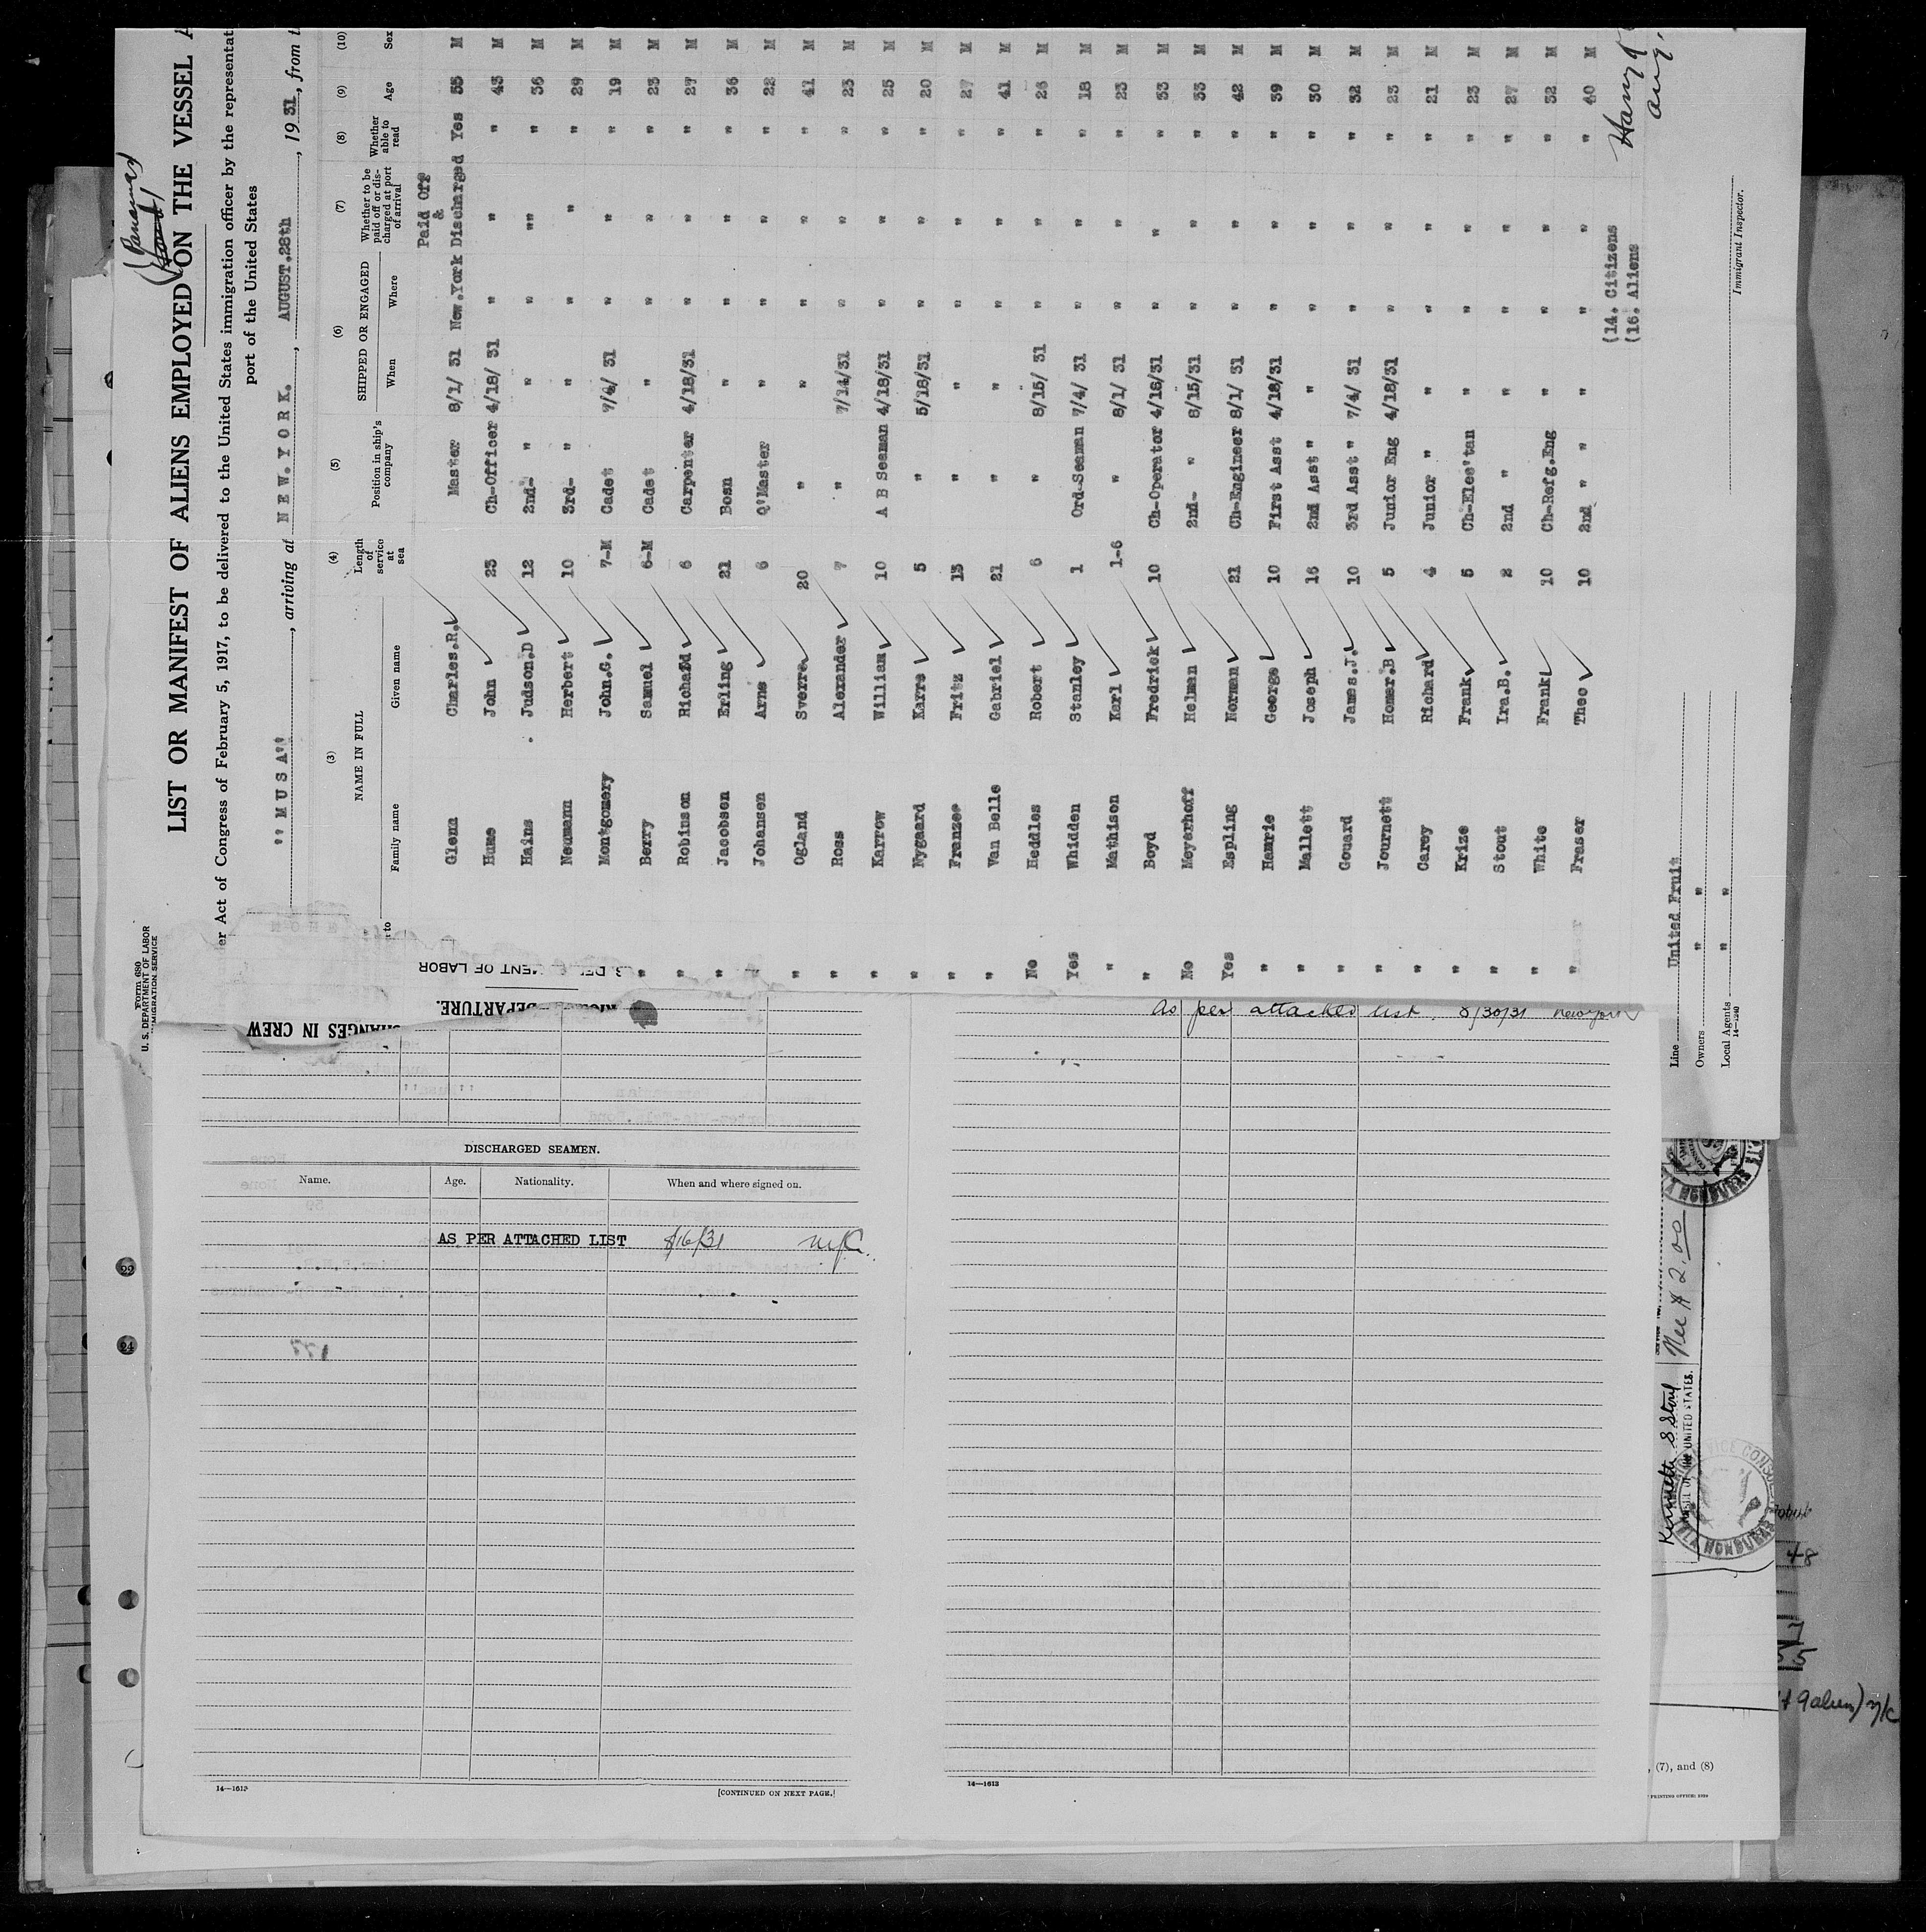 Form 680
U. S. DEPARTMENT OF LABOR
IMMIGRATION SERVICE
(Panaman)
LIST OR MANIFEST OF ALIENS EMPLOYED ON THE VESSEL A
er Act of Congress of February 5, 1917, to be delivered to the United States immigration officer by the representat
port of the United States
"MUSA", arriving at NEW.YORK., AUGUST.28th, 19 31, from t
(3) (4) (5) (6) (7) (8) (9) (10)
NAME IN FULL Length of service at sea Position in ship's company SHIPPED OR ENGAGED Whether to be paid off or discharged at port of arrival Whether able to read Age Sex
to Family name Given name When Where
Paid Off
&
Glenn Charles.R. Master 8/1/ 31 New.York Discharged Yes 55 M
Hume John 23 Ch-Officer 4/18/ 31 " " " 43 M
Hains Judson.D 12 2nd- " " " "" " 36 M
Neumann Herbert 10 3rd- " " " " " 29 M
Montgomery John.G. 7-M Cadet 7/4/ 31 " " " 19 M
" Berry Samuel 6-M Cadet " " " " 23 M
" Robinson Richard 6 Carpenter 4/18/31 " " " 27 M
" Jacobsen Erling 21 Bosn " " " " 36 M
" Johansen Arne 6 Q'Master " " " " 22 M
" Ogland Sverre 20 " " " " " 41 M
" Ross Alexander 7 " 7/14/31 " " " 23 M
" Karrow William 10 A B Seaman 4/18/31 " " " 25 M
" Nygaard Karre 5 " 5/18/31 " " " 20 M
" Franzee Fritz 13 " " " " " 27 M
" Van Belle Gabriel 21 " " " " " 41 M
No Heddles Robert 6 " 8/15/ 31 " " " 26 M
Yes Whidden Stanley 1 Ord-Seaman 7/4/ 31 " " " 18 M
" Mathison Karl 1-6 " 8/1/ 31 " " " 23 M
" Boyd Fredrick 10 Ch-Operator 4/16/31 " " " 33 M
No Meyerhoff Helman 2nd- " 8/15/31 " " " 33 M
Yes Espling Norman 21 Ch-Engineer 8/1/ 31 " " " 42 M
" Hamrie George 10 First Asst 4/18/31 " " " 39 M
" Mallett Joseph 16 2nd Asst " " " " " 30 M
" Gouard James.J. 10 3rd Asst " 7/4/ 31 " " " 32 M
" Journett Homer.B 5 Junior Eng 4/18/31 " " " 23 M
" Carey Richard 4 Junior " " " " " 21 M
" Krize Frank 5 Ch-Elec'tan " " " " 23 M
" Stout Ira.B. 2 2nd " " " " " 27 M
" White Frank 10 Ch-Refg.Eng " " " " 32 M
" Fraser Theo 10 2nd " " " " " " 40 M
(14. Citizens
(16. Aliens
Line United Fruit
Owners " "
Local Agents " "
14—1240
Immigrant Inspector.
MENT OF LABOR
DEPARTURE.
CHANGES IN CREW
DISCHARGED SEAMEN.
Name. Age. Nationality. When and where signed on.
AS PER ATTACHED LIST 8/16/31 N.Y.C.
14—1613
[CONTINUED ON NEXT PAGE.]
As per attached list. 8/30/31 New York
14—1613
22
24
177
Kenneth S Story
CONSUL OF THE UNITED STATES.
2.00
HONDURAS
HONDURAS
48
, (7), and (8)
PRINTING OFFICE: 1930